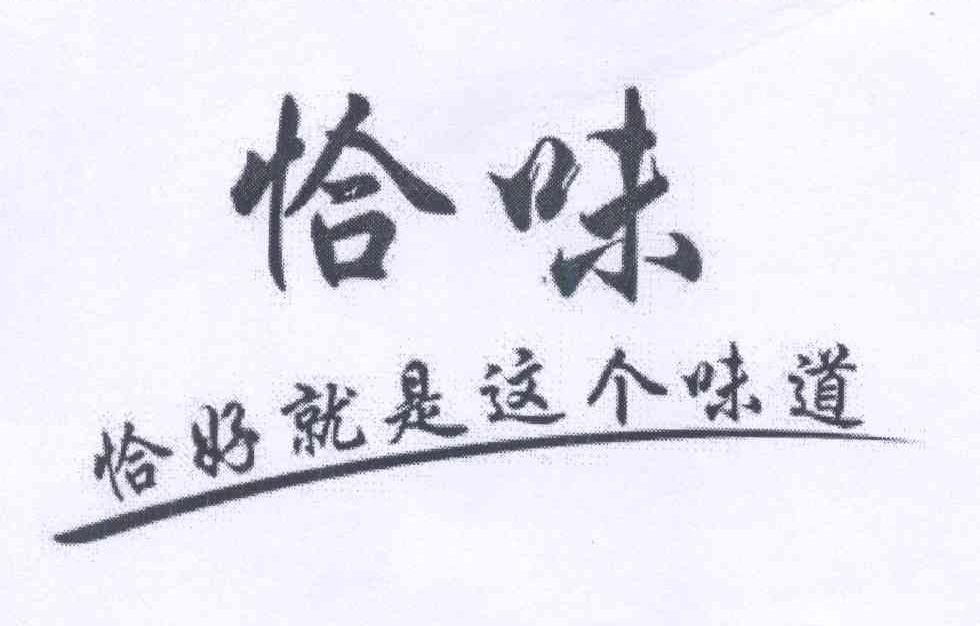 恰味
恰好就是这个味道